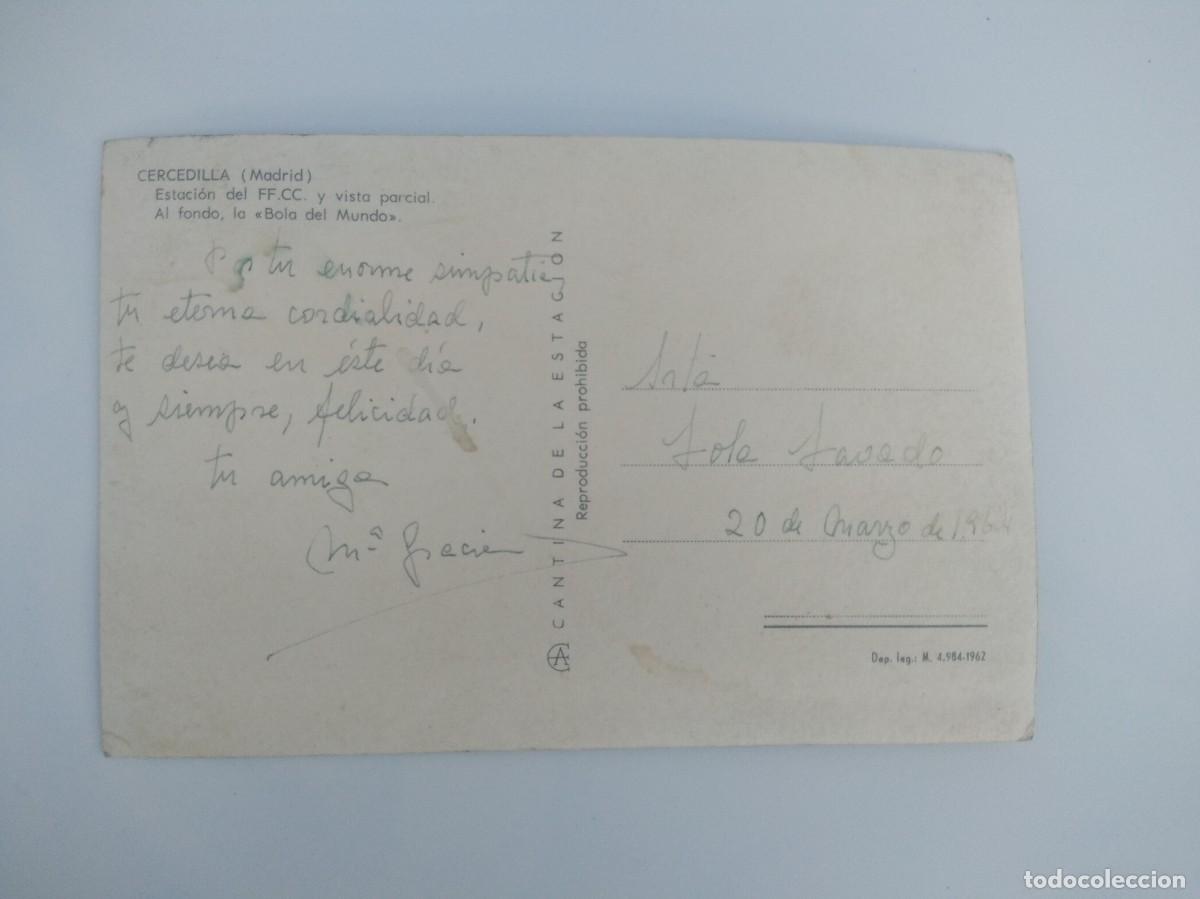 CERCEDILLA (Madrid)
Estación del FF.CC. y vista parcial.
Al fondo, la «Bola del Mundo».
Por tu enorme simpatia
tu eterna cordialidad,
te desea en éste día
y siempre, felicidad.
tu amiga
Mª Gracia
CANTINA DE LA ESTACION
Reproducción prohibida
Srtª
Lola Lavado
20 de Marzo de 196
Dep. leg.: M. 4.984-1962
todocoleccion